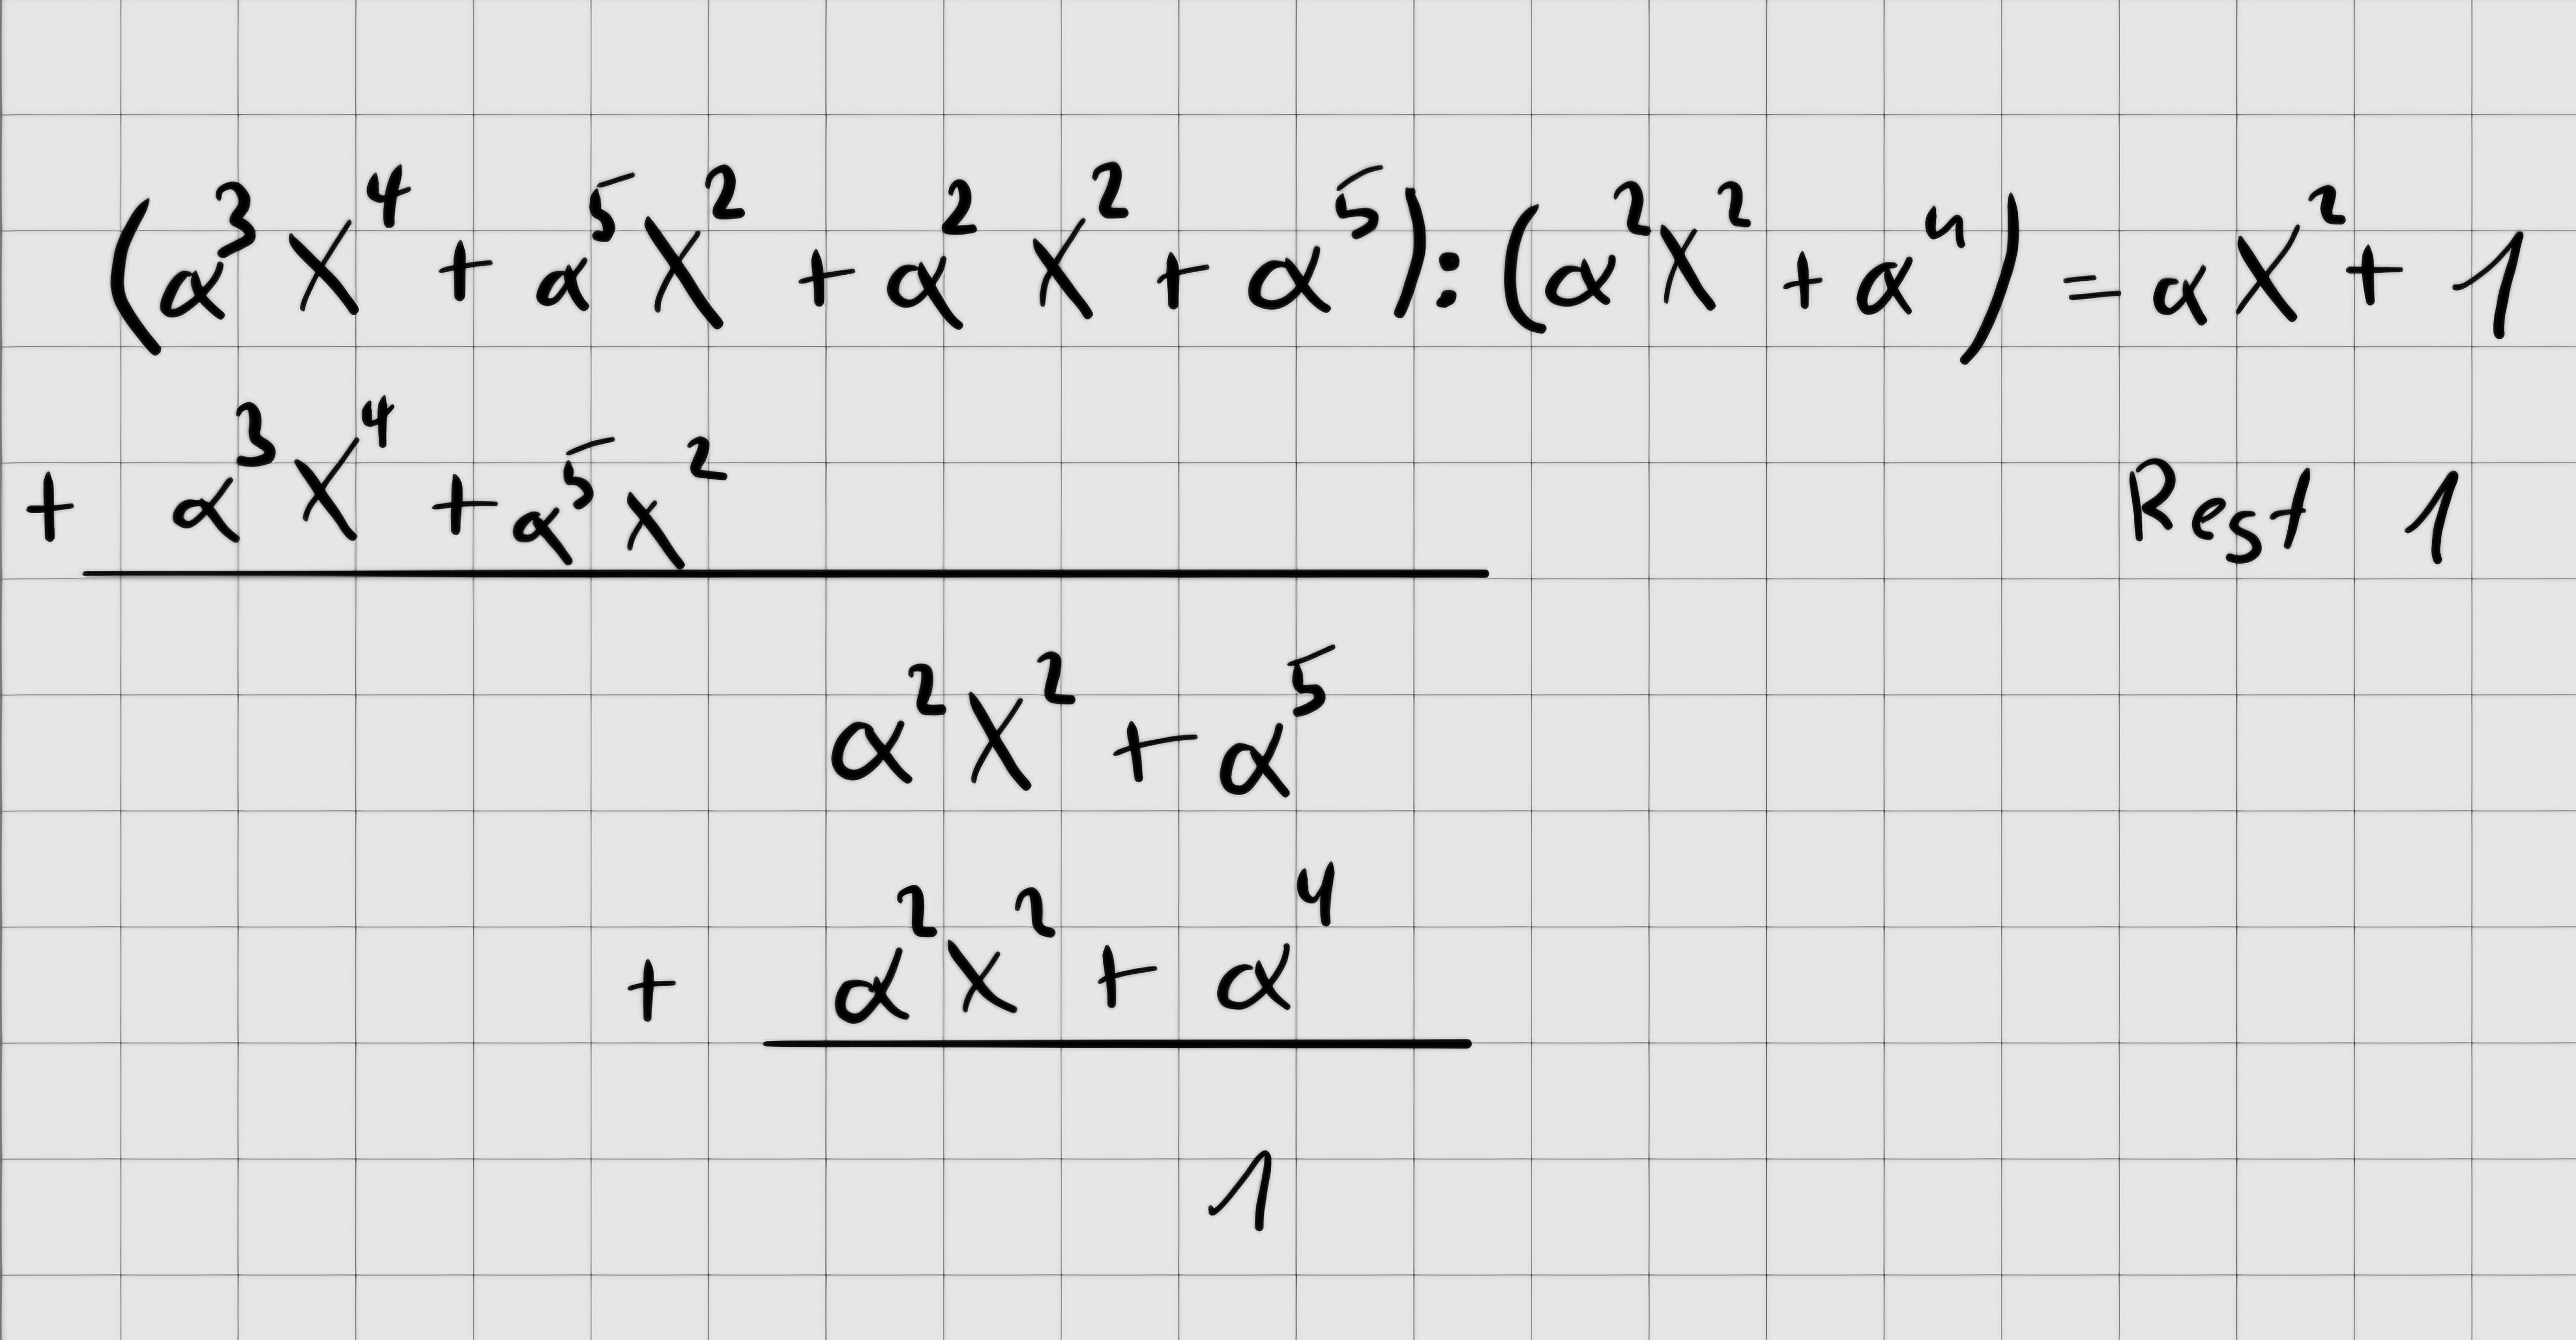 (α³X⁴ + α⁵X² + α²X² + α⁵) : (α²X² + α⁴) = αX² + 1
+ α³X⁴ + α⁵X² Rest 1
α²X² + α⁵
+ α²X² + α⁴
1